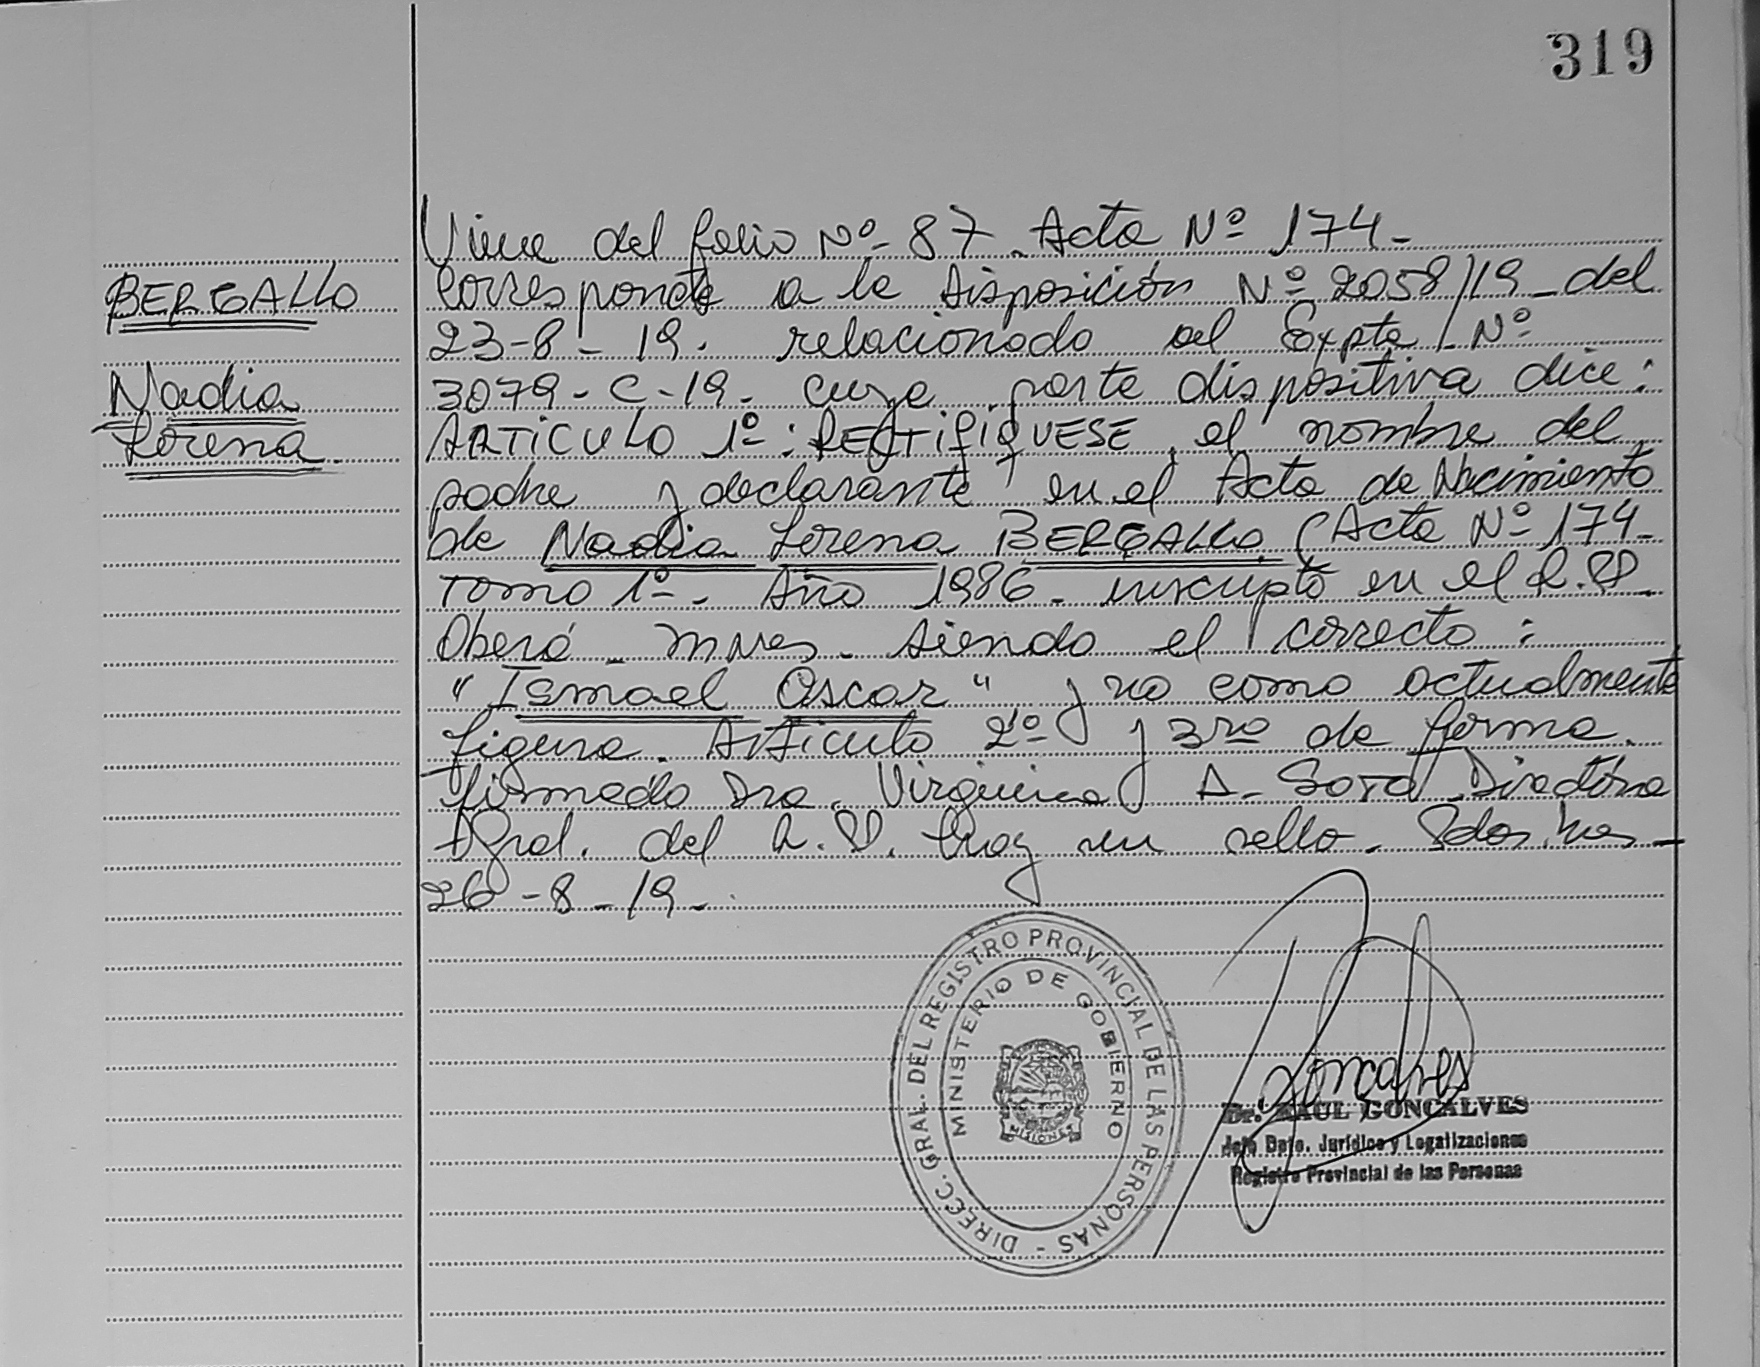 319
BERGALLO
Nadia
Lorena.
Viene del folio Nº 87. Acta Nº 174-
Corresponde a la Disposición Nº 2058/19 - del
23-8-19. relacionado al Expte. Nº
3079-C-19- cuya parte dispositiva dice:
ARTICULO 1º: RECTIFIQUESE, el nombre del
padre y declarante en el Acta de Nacimiento
de Nadia Lorena BERGALLO (Acta Nº 174-
Tomo 1º- Año 1986- inscripto en el R.P.
Oberá - Mnes- siendo el correcto:
"Ismael Oscar" y no como actualmente
figura. Articulo 2º y 3ro de forma.
Firmado Dra. Virginia A. Directora
Gral. del R.P. hay un sello. Pdas. Mnes-
26-8-19-.
DIRECC. GRAL. DEL REGISTRO PROVINCIAL DE LAS PERSONAS -
MINISTERIO DE GOBIERNO
MISIONES
Goncalves
Dr. RAUL GONCALVES
Jefe Dpto. Jurídico y Legalizaciones
Registro Provincial de las Personas